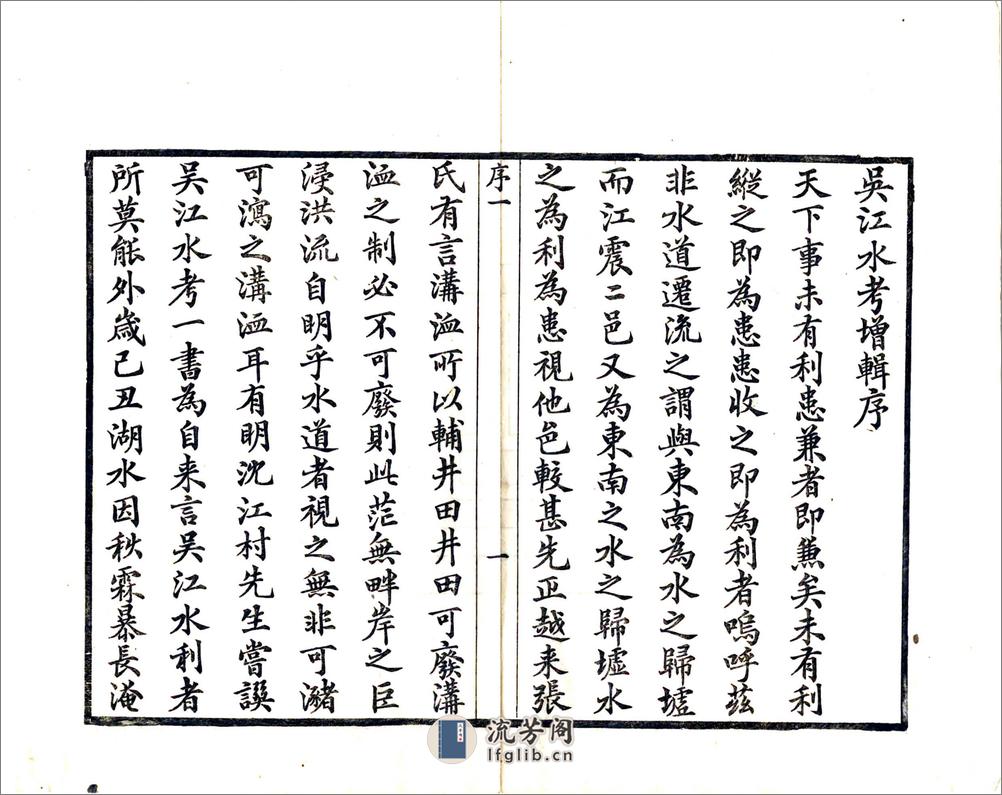 吳江水考增輯序
天下事未有利患兼者即兼矣未有利
縱之即為患患收之即為利者嗚呼茲
非水道遷流之謂與東南為水之歸墟
而江震二邑又為東南之水之歸墟水
之為利為患視他邑較甚先正越来張
序一
一
氏有言溝洫所以輔井田井田可廢溝
洫之制必不可廢則此茫無畔岸之巨
浸洪流自明乎水道者視之無非可瀦
可瀉之溝洫耳有明沈江村先生嘗譔
吴江水考一書為自来言吴江水利者
所莫能外歲己丑湖水因秋霖暴長淹
流芳阁
lfglib.cn